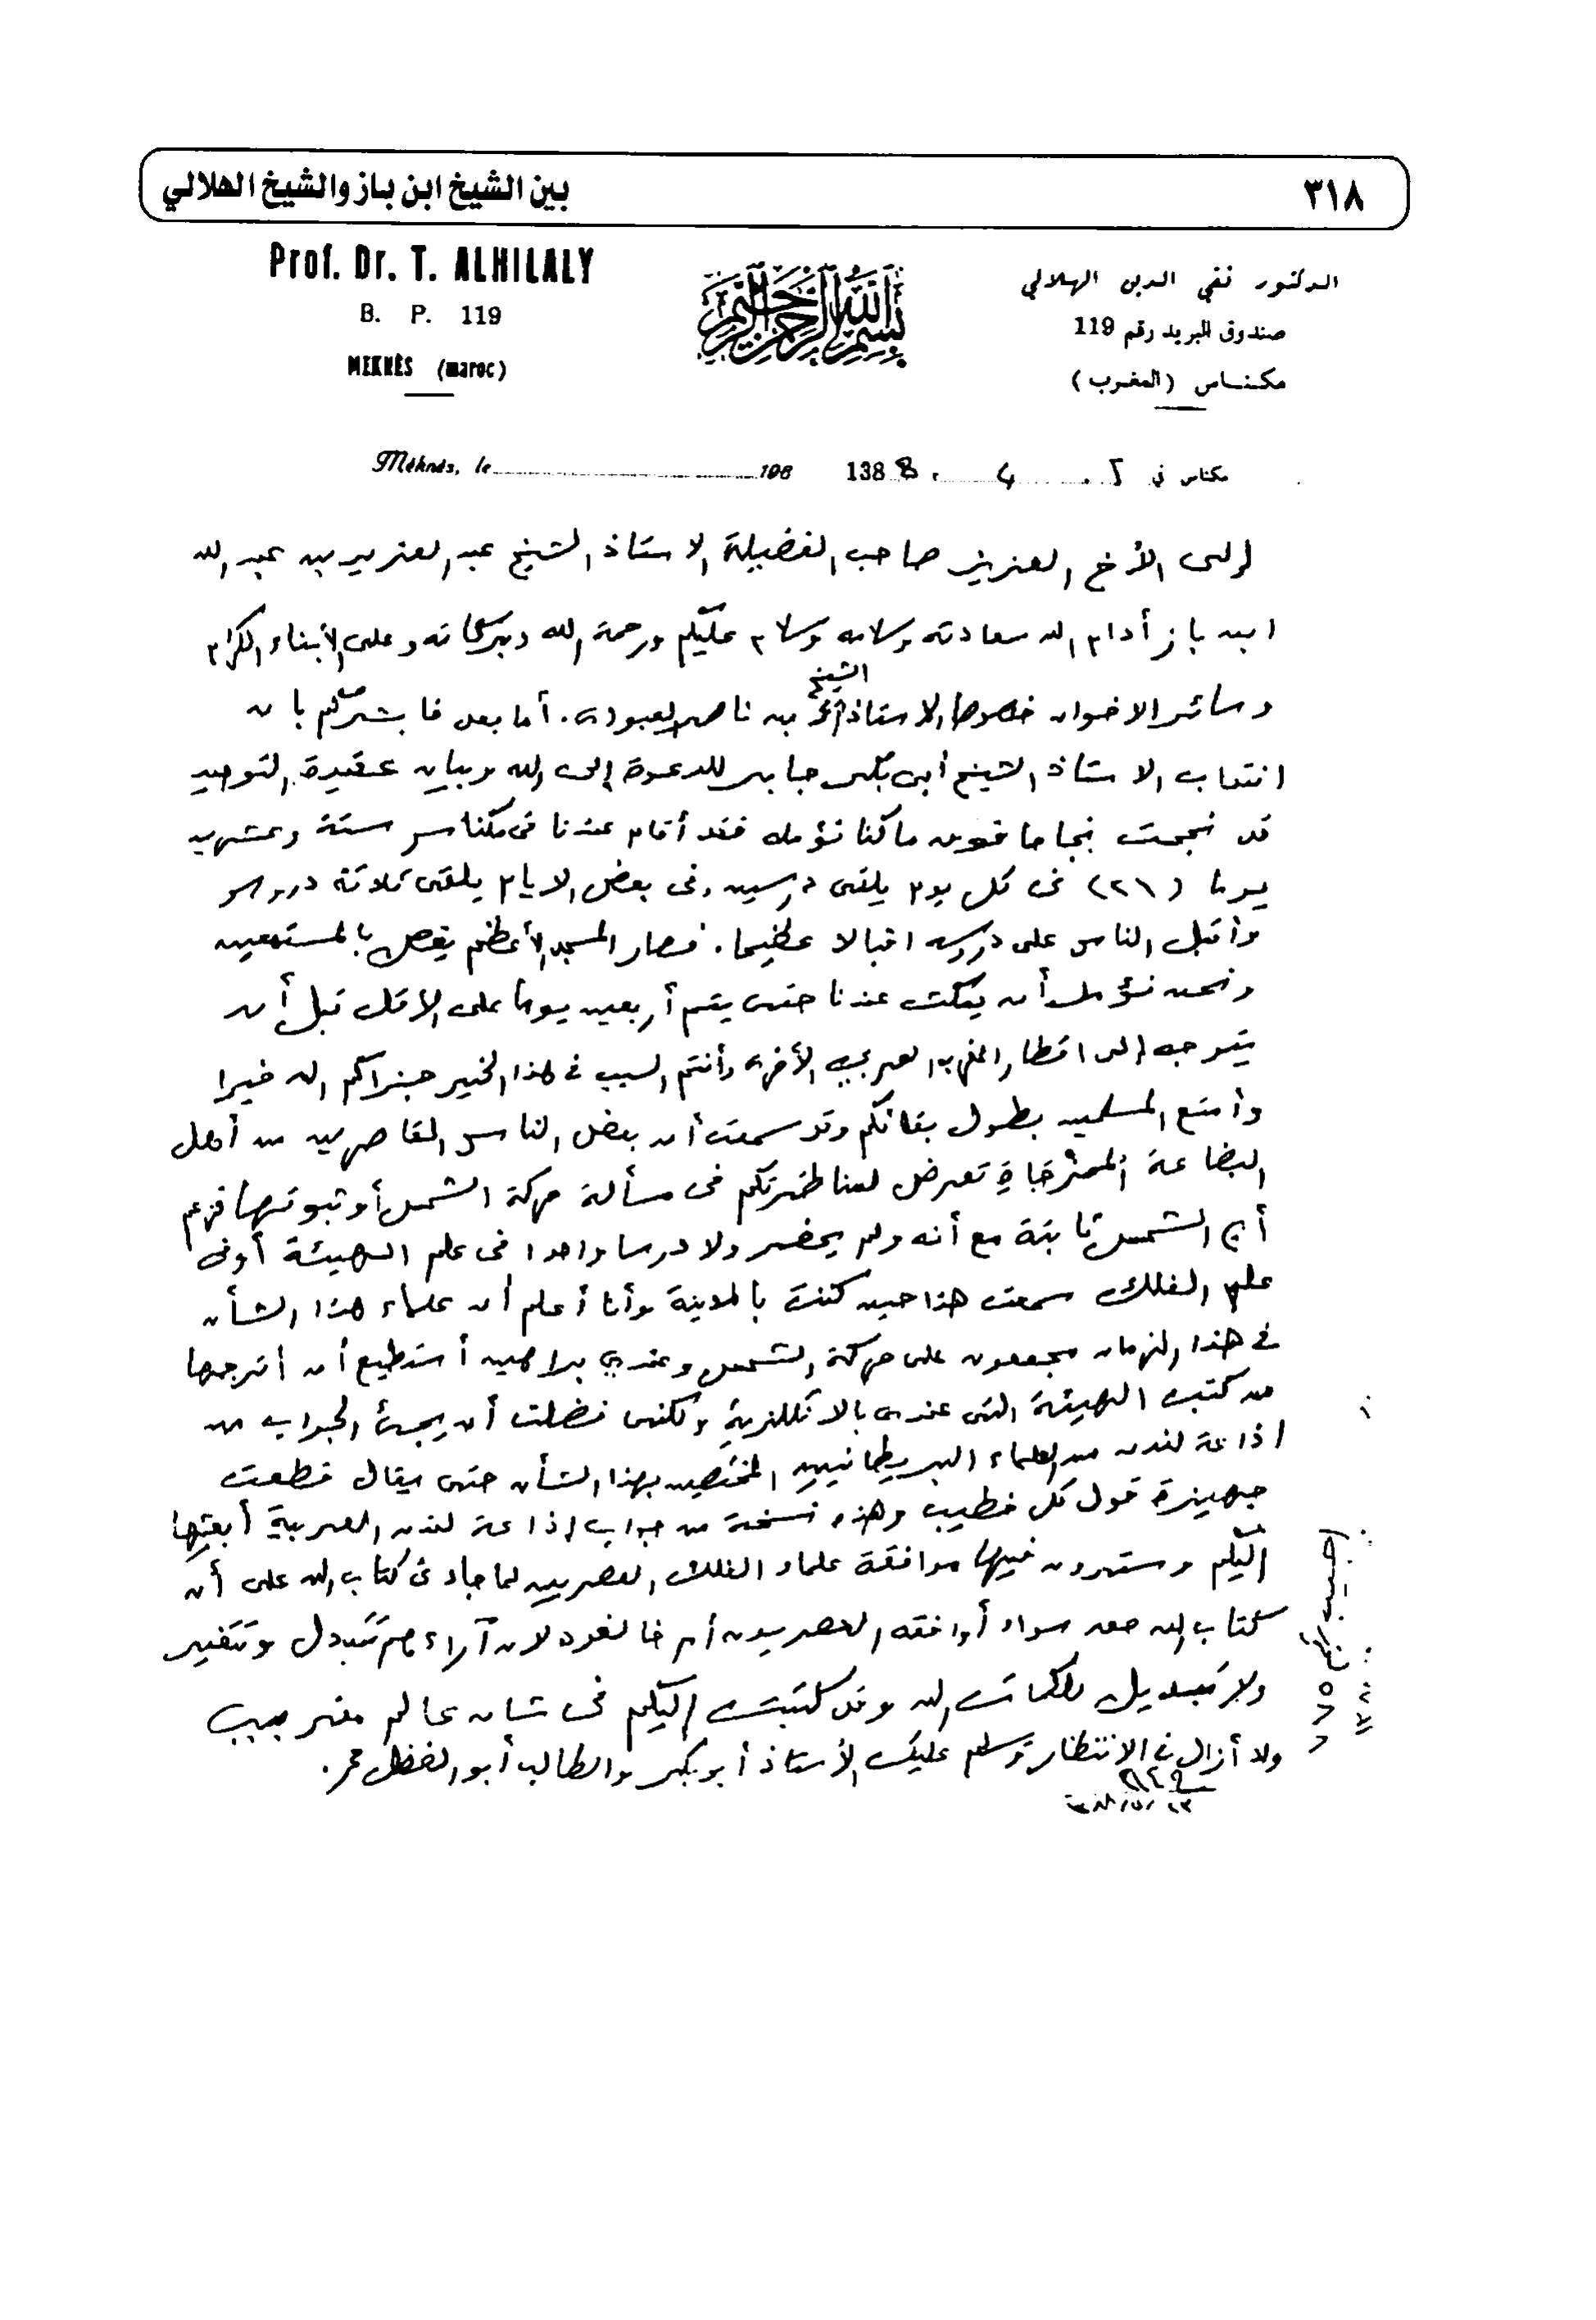 ٣١٨
بين الشيخ ابن باز والشيخ الهلالي
Prof. Dr. T. ALHILALY
B. P. 119
MEKNÈS (maroc)
بسم الله الرحمن الرحيم
الدكتور تقي الدين الهلالي
صندوق البريد رقم 119
مكناس (المغرب)
Méknés, le 196
مكناس في 4 138 8
إلى الأخ العزيز صاحب الفضيلة الاستاذ الشيخ عبد العزيز بن عبد الله
ابن باز أدام الله سعادته وسلامه وسلام عليكم ورحمة الله وبركاته وعلى الأبناء الكرام
وسائر الاخوان خصوصا الاستاذ الشيخ محمد بن ناصر العبودي. أما بعد فابشركم بان
انتداب الاستاذ الشيخ أبى بكر جابر للدعوة إلى الله وبيان عقيدة التوحيد
قد نجحت نجاحا فوق ما كنا نؤمله فقد أقام عندنا فى مكناس ستة وعشرين
يوما (٢٦) فى كل يوم يلقى درسين وفى بعض الايام يلقى ثلاثة دروس
وأقبل الناس على دروسه اقبالا عظيما. فصار المسجد الأعظم يغص بالمستمعين
ونحن نؤمل أن يمكث عندنا حتى يتم أربعين يوما على الأقل قبل أن
يتوجه إلى اقطار المغرب العربي الأخرى وأنتم السبب في هذا الخير جزاكم الله خيرا
وأمتع المسلمين بطول بقائكم وقد سمعت أن بعض الناس القاصرين من أهل
البضاعة المزجاة تعرض لمناظرتكم فى مسألة حركة الشمس أو ثبوتها فزعم
أن الشمس ثابتة مع أنه ولم يحضر ولا درسا واحدا فى علم الهيئة أوفى
علم الفلك سمعت هذا حين كنت بالمدينة وأنا أعلم أن علماء هذا الشأن
في هذا الزمان مجمعون على حركة الشمس وعندي براهين أستطيع أن أترجمها
من كتب الهيئة التى عندى بالانكليزية ولكنى فضلت أن يجئ الجواب من
اذاعة لندن من العلماء البريطانيين المختصين بهذا الشأن حتى يقال قطعت
جهيزة قول كل خطيب وهذه نسخة من جواب إذاعة لندن العربية أبعثها
اليكم وسترون فيها موافقة علماء الفلك العصريين لما جاء فى كتاب الله على أن
كتاب الله حق سواء أوافقه العصريون أم خالفوه لان آراءهم تتبدل وتتغير
ولا تبديل لكلمات الله وقد كتبت إليكم فى شان عالم
ولا أزال في الانتظار ويسلم عليكم الأستاذ أبو بكر والطالب أبو الفضل عمر.